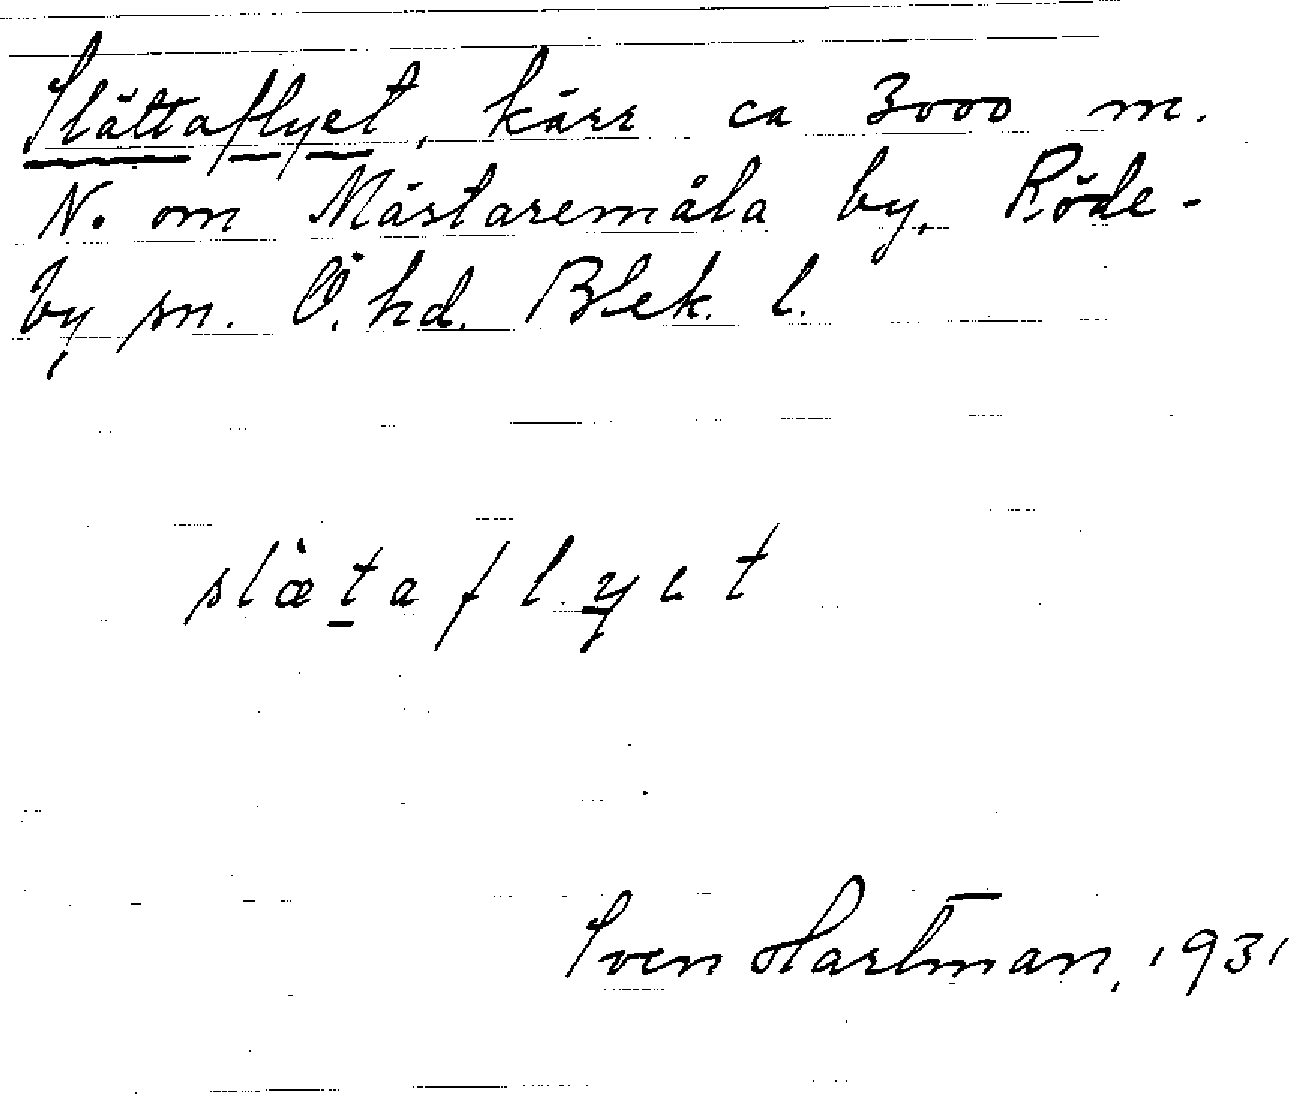 Slättaflyet, kärr ca 3000 m.
N. om Mästaremåla by, Röde-
by sn. Ö. hd. Blek. l.
slætaflyet
Sven Hartman, 1931